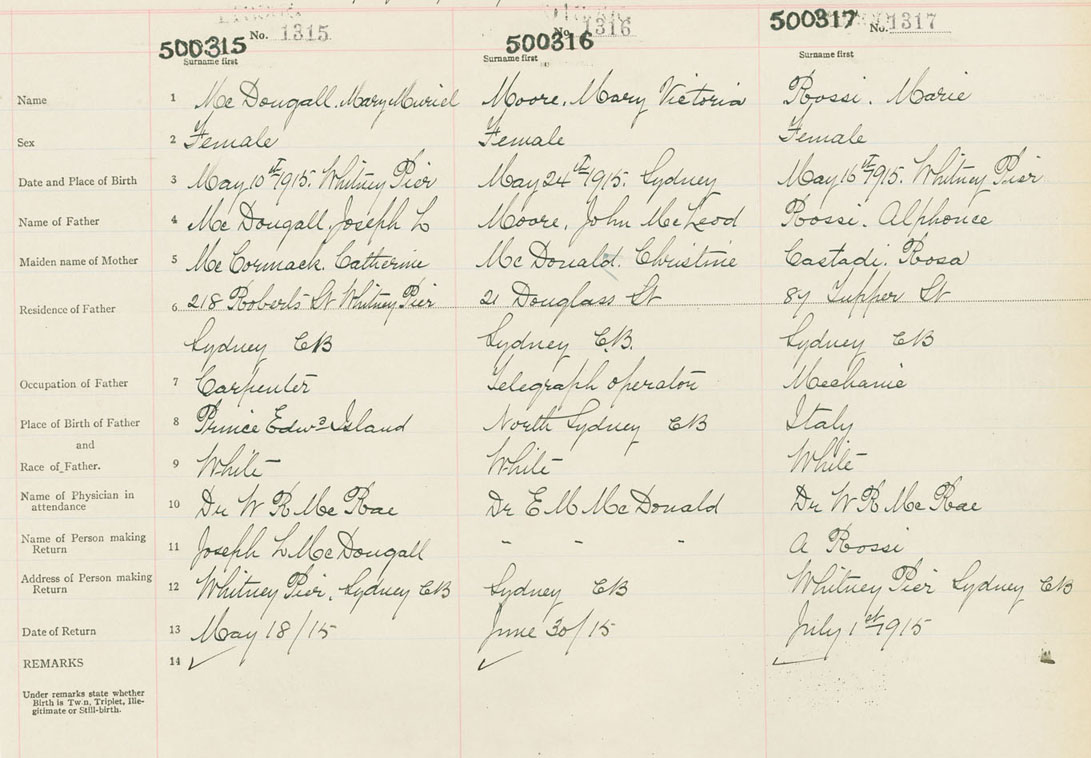 500315 No. 1315 500316 No. 1316 500317 No. 1317
Surname first Surname first Surname first
Name 1 Mc Dougall, Mary Muriel Moore, Mary Victoria Rossi. Marie
Sex 2 Female Female Female
Date and Place of Birth 3 May 10th 1915. Whitney Pier May 24th 1915. Sydney May 16th 1915. Whitney Pier
Name of Father 4 Mc Dougall, Joseph L Moore, John McLeod Rossi. Alphonce
Maiden name of Mother 5 Mc Cormack. Catherine Mc Donald. Christine Castadi. Rosa
Residence of Father 6 218 Roberts St Whitney Pier 21 Douglass St 87 Tupper St
Sydney CB Sydney C.B. Sydney CB
Occupation of Father 7 Carpenter Telegraph operator Mechanic
Place of Birth of Father 8 Prince Edwd Island North Sydney CB Italy
and
Race of Father. 9 White White White
Name of Physician in
attendance 10 Dr W R Mc Rae Dr E M McDonald Dr W R Mc Rae
Name of Person making
Return 11 Joseph L McDougall " " " A Rossi
Address of Person making
Return 12 Whitney Pier, Sydney CB Sydney CB Whitney Pier Sydney CB
Date of Return 13 May 18/15 June 30/15 July 1st 1915
REMARKS 14 ✓ ✓ ✓
Under remarks state whether
Birth is Twn, Triplet, Ille-
gitimate or Still-birth.